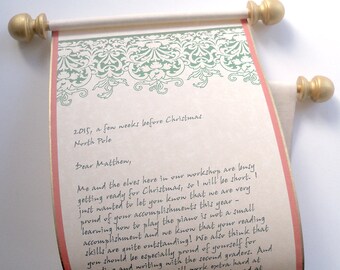 2015, a few weeks before Christmas
North Pole
Dear Matthew,
Me and the elves here in our workshop are busy
getting ready for Christmas, so I will be short. I
just wanted to let you know that we are very
proud of your accomplishments this year -
learning how to play the piano is not a small
accomplishment and we know that your reading
skills are quite outstanding! We also think that
you should be especially proud of yourself for
and writing with the second graders. And
work extra hard at